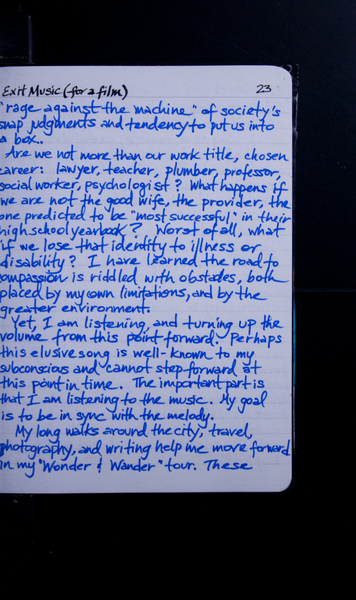 Exit Music (for a film) 23
"rage against the machine" of society's
snap judgments and tendency to put us into
a box..
Are we not more than our work title, chosen
career: lawyer, teacher, plumber, professor,
social worker, psychologist? What happens if
we are not the good wife, the provider, the
one predicted to be "most successful" in their
high school yearbook? Worst of all, what
if we lose that identity to illness or
disability? I have learned the road to
compassion is riddled with obstacles, both
placed by my own limitations, and by the
greater environment.
Yet, I am listening, and turning up the
volume from this point forward. Perhaps
this elusive song is well-known to my
subconscious and cannot step forward at
this point in time. The important part is
that I am listening to the music. My goal
is to be in sync with the melody.
My long walks around the city, travel,
photography, and writing help me move forward
in my "Wonder & Wander" tour. These